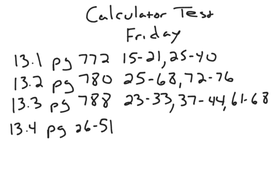 Calculator Test
Friday
13.1 pg 772 15-21, 25-40
13.2 pg 780 25-68, 72-76
13.3 pg 788 23-33, 37-44, 61-68
13.4 pg 26-51